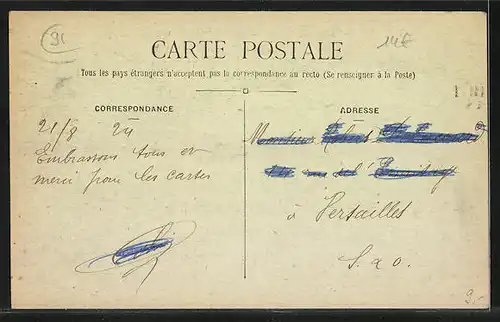 91
14€
CARTE POSTALE
Tous les pays étrangers n'acceptent pas la correspondance au recto (Se renseigner à la Poste)
CORRESPONDANCE
21/8 24
Embrassons tous et
merci pour les cartes
ADRESSE
Monsieur
à Versailles
S. & O.
9.-